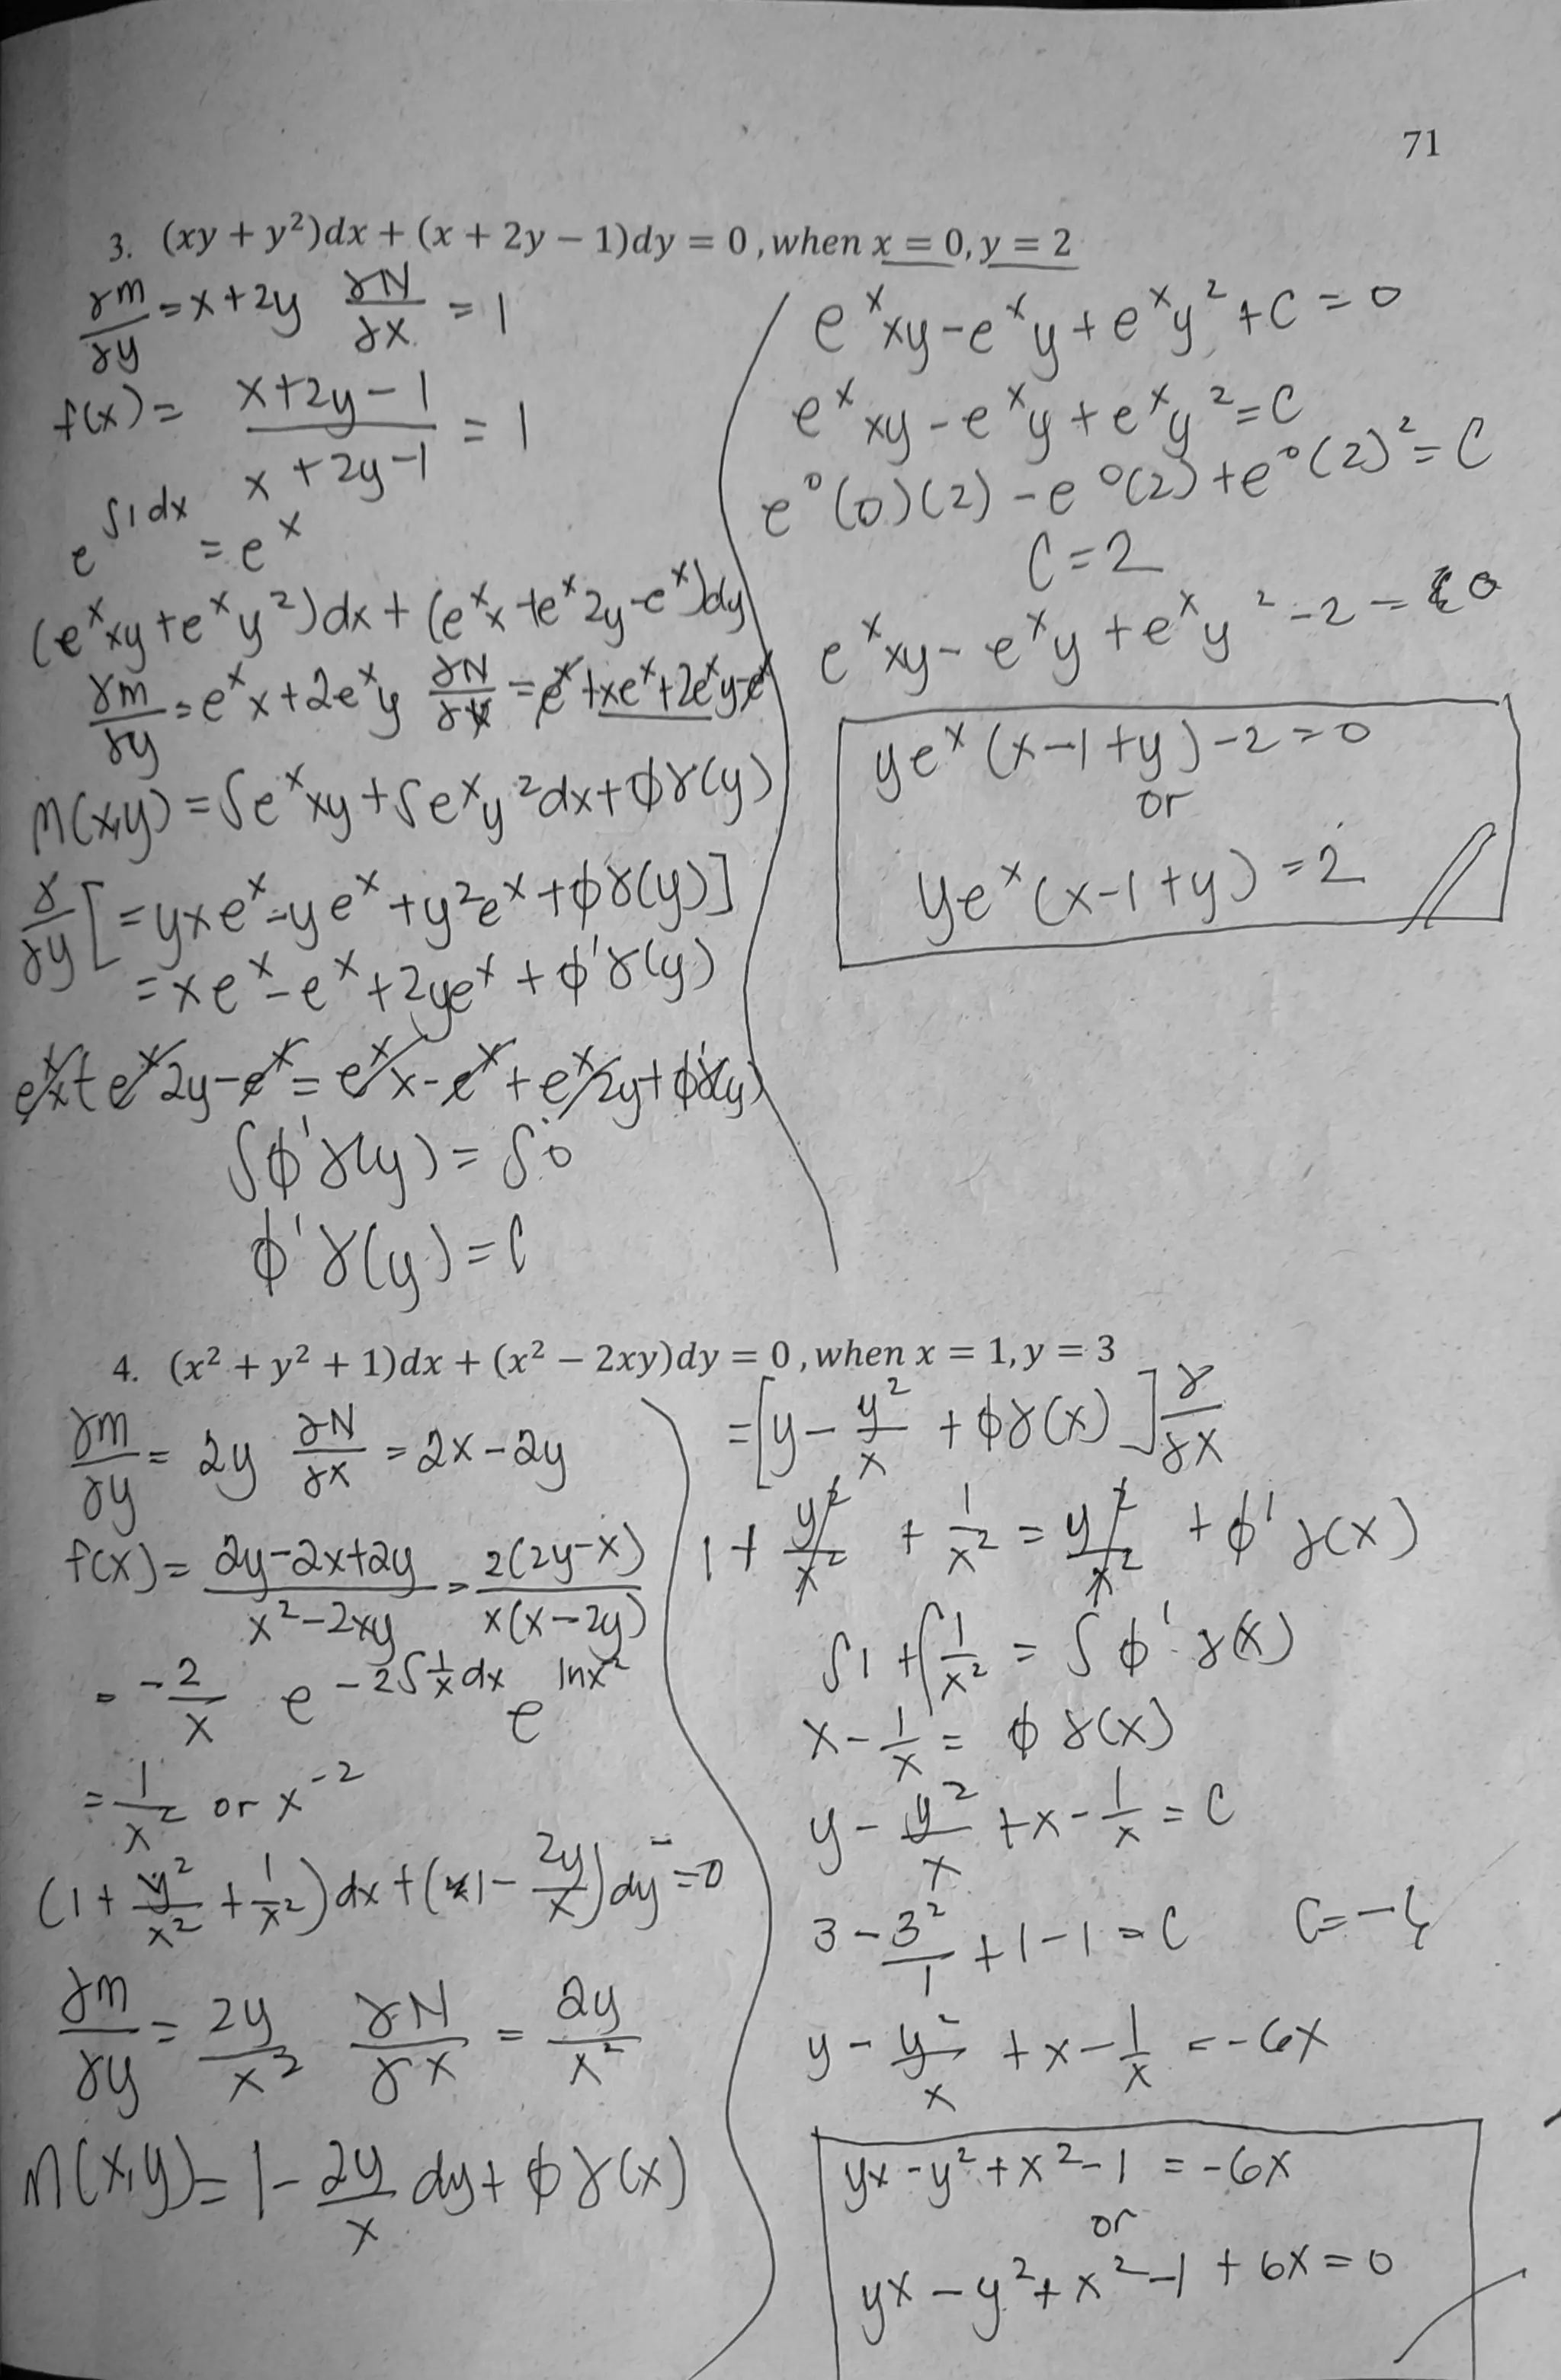 71
3. (xy + y²)dx + (x + 2y − 1)dy = 0 , when x = 0, y = 2
∂M/∂y = x + 2y   ∂N/∂x = 1
f(x) = (x + 2y − 1)/(x + 2y − 1) = 1
e^∫1dx = e^x
(e^x xy + e^x y²)dx + (e^x x + e^x 2y − e^x)dy
∂M/∂y = e^x x + 2e^x y   ∂N/∂x = e^x + xe^x + 2e^x y − e^x
M(x,y) = ∫e^x xy + ∫e^x y² dx + ϕ∂(y)
∂/∂y [= yxe^x − ye^x + y²e^x + ϕ∂(y)]
= xe^x − e^x + 2ye^x + ϕ'∂(y)
e^x x + e^x 2y − e^x = e^x x − e^x + e^x 2y + ϕ'∂(y)
∫ϕ'∂(y) = ∫0
ϕ'∂(y) = C
e^x xy − e^x y + e^x y² + C = 0
e^x xy − e^x y + e^x y² = C
e^0 (0)(2) − e^0 (2) + e^0 (2)² = C
C = 2
e^x xy − e^x y + e^x y² − 2 = 0
ye^x (x − 1 + y) − 2 = 0
or
ye^x (x − 1 + y) = 2
4. (x² + y² + 1)dx + (x² − 2xy)dy = 0 , when x = 1, y = 3
∂M/∂y = 2y   ∂N/∂x = 2x − 2y
f(x) = (2y − 2x + 2y)/(x² − 2xy) = 2(2y − x)/x(x − 2y)
= −2/x   e^−2∫1/x dx   e^lnx^−2
= 1/x² or x^−2
(1 + y²/x² + 1/x²)dx + (1 − 2y/x)dy = 0
∂M/∂y = 2y/x²   ∂N/∂x = 2y/x²
M(x,y) = 1 − 2y/x dy + ϕ∂(x)
= [y − y²/x + ϕ∂(x)] ∂/∂x
1 + y²/x² + 1/x² = y²/x² + ϕ'∂(x)
∫1 + ∫1/x² = ∫ϕ'∂(x)
x − 1/x = ϕ∂(x)
y − y²/x + x − 1/x = C
3 − 3²/1 + 1 − 1 = C   C = −6
y − y²/x + x − 1/x = −6x
yx − y² + x² − 1 = −6x
or
yx − y² + x² − 1 + 6x = 0